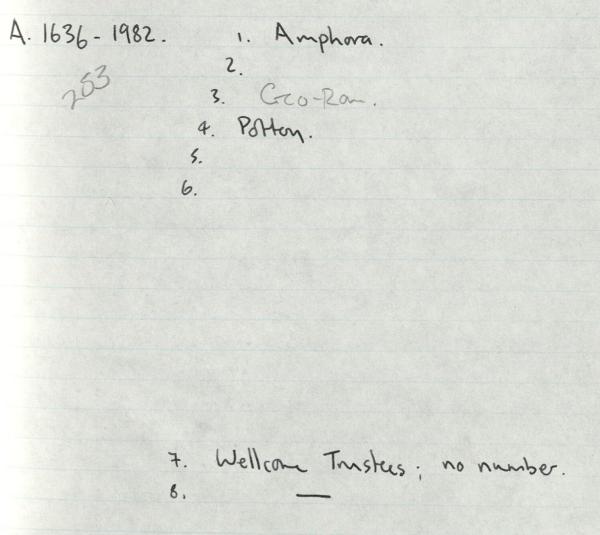 A. 1636-1982. 1. Amphora.
2.
253
3. Gco-Rom.
4. Pottery.
5.
6.
7. Wellcome Trustees; no number.
8. —